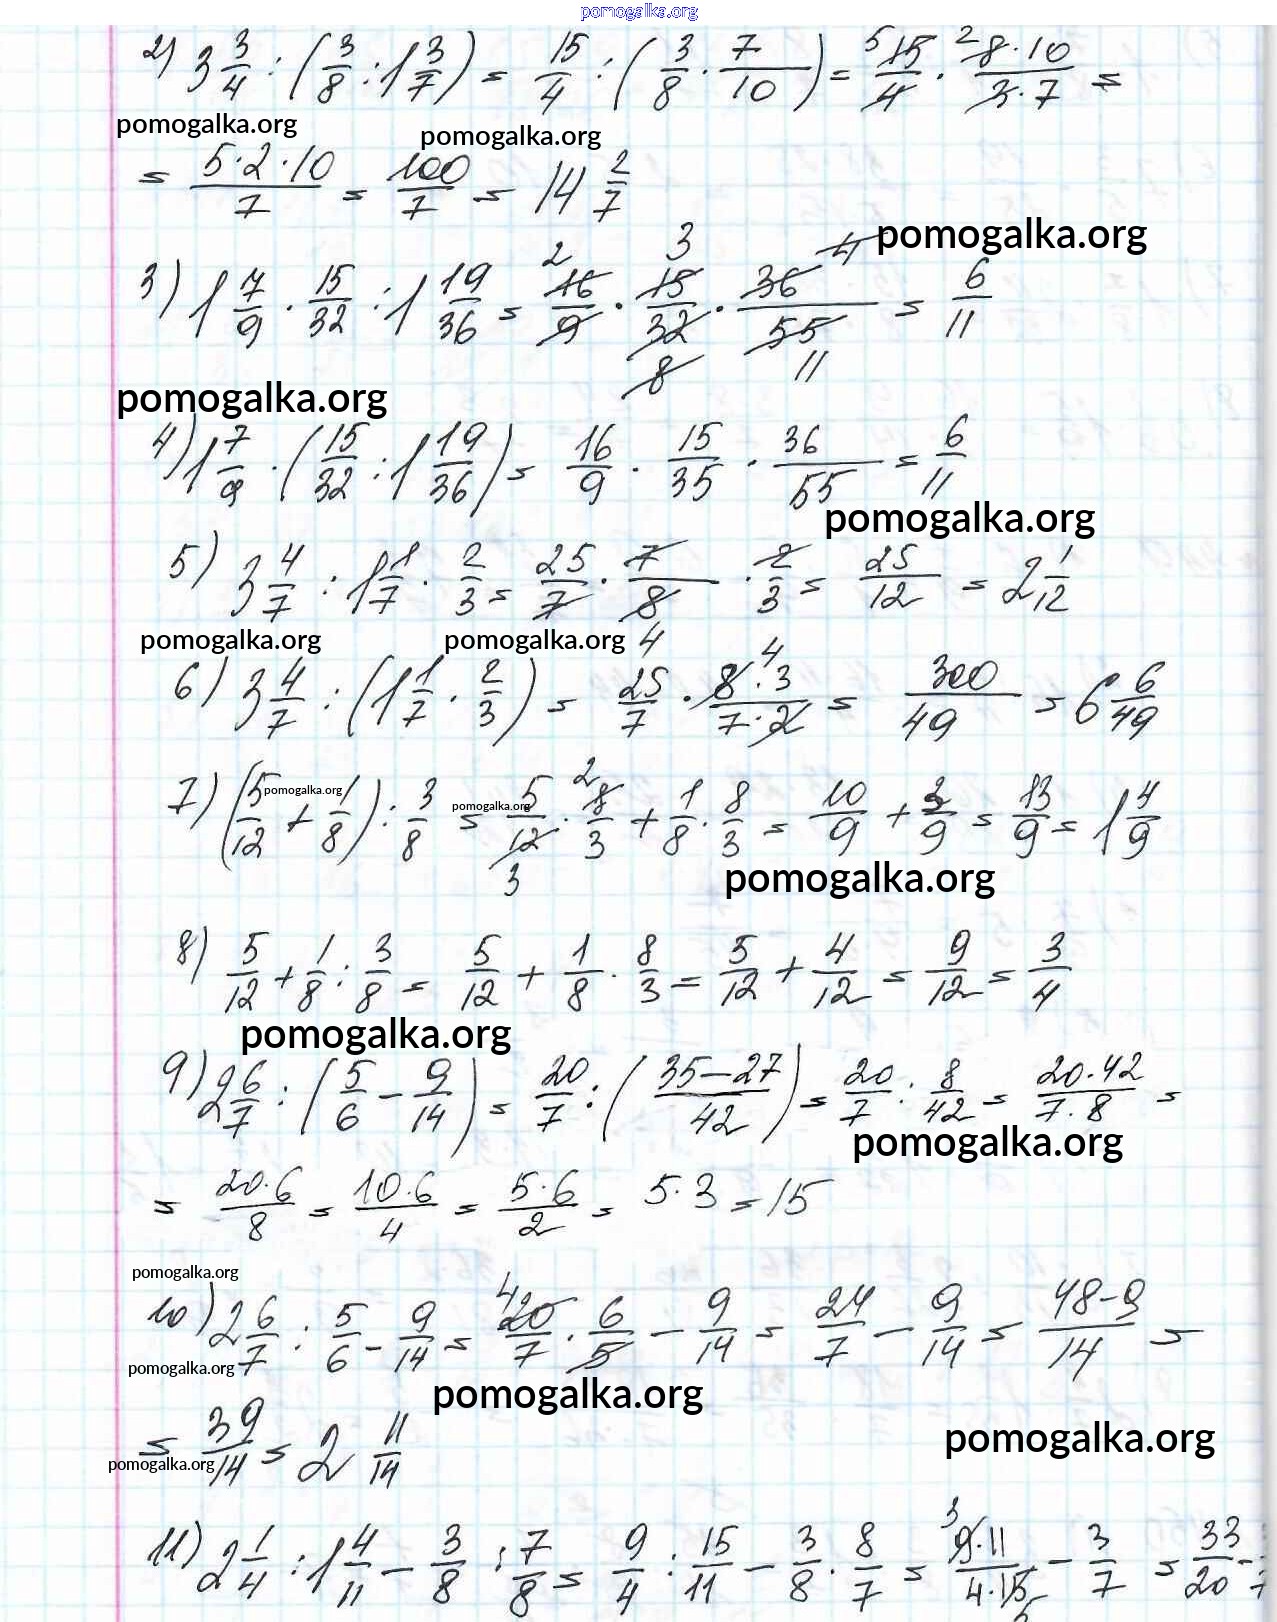 pomogalka.org
2) 3 3/4 : (3/8 : 1 3/7) = 15/4 : (3/8 · 7/10) = 5 15/4 · 2 8·10/3·7 =
pomogalka.org pomogalka.org
= 5·2·10/7 = 100/7 = 14 2/7
pomogalka.org
3) 1 7/9 · 15/32 : 1 19/36 = 2 16/9 · 3 15/32 8 · 36 4/55 11 = 6/11
pomogalka.org
4) 1 7/9 · (15/32 : 1 19/36) = 16/9 · 15/35 · 36/55 = 6/11
pomogalka.org
5) 3 4/7 : 1 1/7 · 2/3 = 25/7 · 7/8 4 · 2/3 = 25/12 = 2 1/12
pomogalka.org pomogalka.org
6) 3 4/7 : (1 1/7 · 2/3) = 25/7 · 4 8·3/7·2 = 300/49 = 6 6/49
7) (5/12 + 1/8) : 3/8 = 5/12 3 · 2 8/3 + 1/8 · 8/3 = 10/9 + 3/9 = 13/9 = 1 4/9
pomogalka.org pomogalka.org
pomogalka.org
8) 5/12 + 1/8 : 3/8 = 5/12 + 1/8 · 8/3 = 5/12 + 4/12 = 9/12 = 3/4
pomogalka.org
9) 2 6/7 : (5/6 - 9/14) = 20/7 : (35-27/42) = 20/7 : 8/42 = 20·42/7·8 =
pomogalka.org
= 20·6/8 = 10·6/4 = 5·6/2 = 5·3 = 15
pomogalka.org
10) 2 6/7 : 5/6 - 9/14 = 4 20/7 · 6/5 - 9/14 = 24/7 - 9/14 = 48-9/14 =
pomogalka.org
pomogalka.org
= 39/14 = 2 11/14
pomogalka.org
pomogalka.org
11) 2 1/4 : 1 4/11 - 3/8 : 7/8 = 9/4 : 15/11 - 3/8 · 8/7 = 3 9·11/4·15 5 - 3/7 = 33/20 -